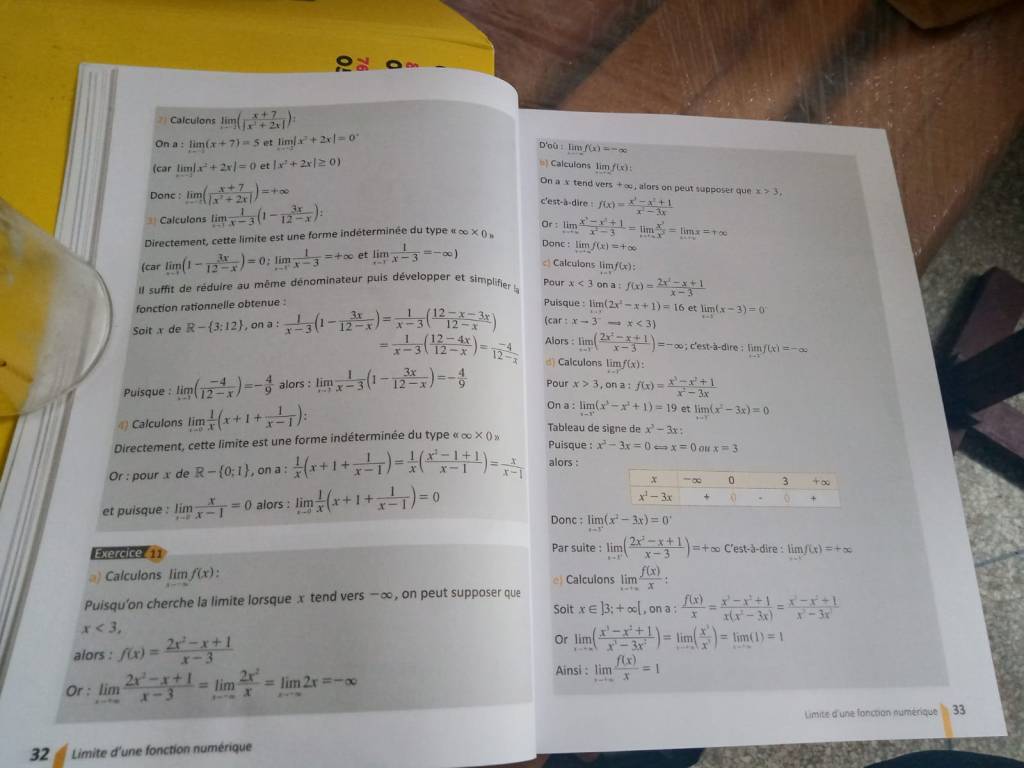 2) Calculons lim x→-2 (x+7 / |x²+2x|) :
On a : lim x→-2 (x+7) = 5 et lim x→-2 |x²+2x| = 0⁺
(car lim x→-2 |x²+2x| = 0 et |x²+2x| ≥ 0)
Donc : lim x→-2 (x+7 / |x²+2x|) = +∞
3) Calculons lim x→3 1/(x-3) (1 - 3x/(12-x)) :
Directement, cette limite est une forme indéterminée du type « ∞ × 0 »
(car lim (1 - 3x/(12-x)) = 0 ; lim x→3⁺ 1/(x-3) = +∞ et lim x→3⁻ 1/(x-3) = -∞)
Il suffit de réduire au même dénominateur puis développer et simplifier la
fonction rationnelle obtenue :
Soit x de ℝ-{3;12}, on a : 1/(x-3) (1 - 3x/(12-x)) = 1/(x-3) ((12-x-3x)/(12-x))
= 1/(x-3) ((12-4x)/(12-x)) = -4/(12-x)
Puisque : lim x→3 (-4/(12-x)) = -4/9 alors : lim x→3 1/(x-3) (1 - 3x/(12-x)) = -4/9
4) Calculons lim x→0 1/x (x+1+ 1/(x-1)) :
Directement, cette limite est une forme indéterminée du type « ∞ × 0 »
Or : pour x de ℝ-{0;1}, on a : 1/x (x+1+ 1/(x-1)) = 1/x ((x²-1+1)/(x-1)) = x/(x-1)
et puisque : lim x→0 x/(x-1) = 0 alors : lim x→0 1/x (x+1+ 1/(x-1)) = 0
Exercice 11
a) Calculons lim x→-∞ f(x) :
Puisqu'on cherche la limite lorsque x tend vers -∞, on peut supposer que
x < 3,
alors : f(x) = (2x²-x+1)/(x-3)
Or : lim (2x²-x+1)/(x-3) = lim 2x²/x = lim 2x = -∞
32 Limite d'une fonction numérique
D'où : lim x→-∞ f(x) = -∞
b) Calculons lim x→+∞ f(x) :
On a x tend vers +∞, alors on peut supposer que x > 3,
c'est-à-dire : f(x) = (x³-x²+1)/(x²-3x)
Or : lim (x³-x²+1)/(x²-3) = lim x³/x² = lim x = +∞
Donc : lim x→+∞ f(x) = +∞
c) Calculons lim x→3⁻ f(x) :
Pour x < 3 on a : f(x) = (2x²-x+1)/(x-3)
Puisque : lim x→3⁻ (2x²-x+1) = 16 et lim x→3⁻ (x-3) = 0⁻
(car : x → 3⁻ ⟹ x < 3)
Alors : lim x→3⁻ ((2x²-x+1)/(x-3)) = -∞ ; c'est-à-dire : lim x→3⁻ f(x) = -∞
d) Calculons lim x→3⁺ f(x) :
Pour x > 3, on a : f(x) = (x³-x²+1)/(x²-3x)
On a : lim x→3⁺ (x³-x²+1) = 19 et lim x→3⁺ (x²-3x) = 0
Tableau de signe de x²-3x :
Puisque : x²-3x = 0 ⟺ x = 0 ou x = 3
alors :
x -∞ 0 3 +∞
x²-3x + 0 - 0 +
Donc : lim x→3⁺ (x²-3x) = 0⁺
Par suite : lim x→3⁺ ((2x²-x+1)/(x-3)) = +∞ C'est-à-dire : lim f(x) = +∞
e) Calculons lim x→+∞ f(x)/x :
Soit x ∈ ]3;+∞[, on a : f(x)/x = (x³-x²+1)/(x(x²-3x)) = (x³-x²+1)/(x³-3x²)
Or lim x→+∞ ((x³-x²+1)/(x³-3x²)) = lim x→+∞ (x³/x³) = lim x→+∞ (1) = 1
Ainsi : lim x→+∞ f(x)/x = 1
Limite d'une fonction numérique 33